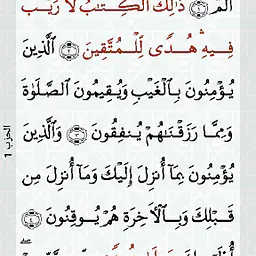 الٓمٓ ۝١ ذَٰلِكَ ٱلْكِتَٰبُ لَا رَيْبَ
فِيهِ هُدًى لِّلْمُتَّقِينَ ۝٢ ٱلَّذِينَ
يُؤْمِنُونَ بِٱلْغَيْبِ وَيُقِيمُونَ ٱلصَّلَوٰةَ
وَمِمَّا رَزَقْنَٰهُمْ يُنفِقُونَ ۝٣ وَٱلَّذِينَ
يُؤْمِنُونَ بِمَآ أُنزِلَ إِلَيْكَ وَمَآ أُنزِلَ مِن
قَبْلِكَ وَبِٱلْأَخِرَةِ هُمْ يُوقِنُونَ ۝٤
الحزب 1